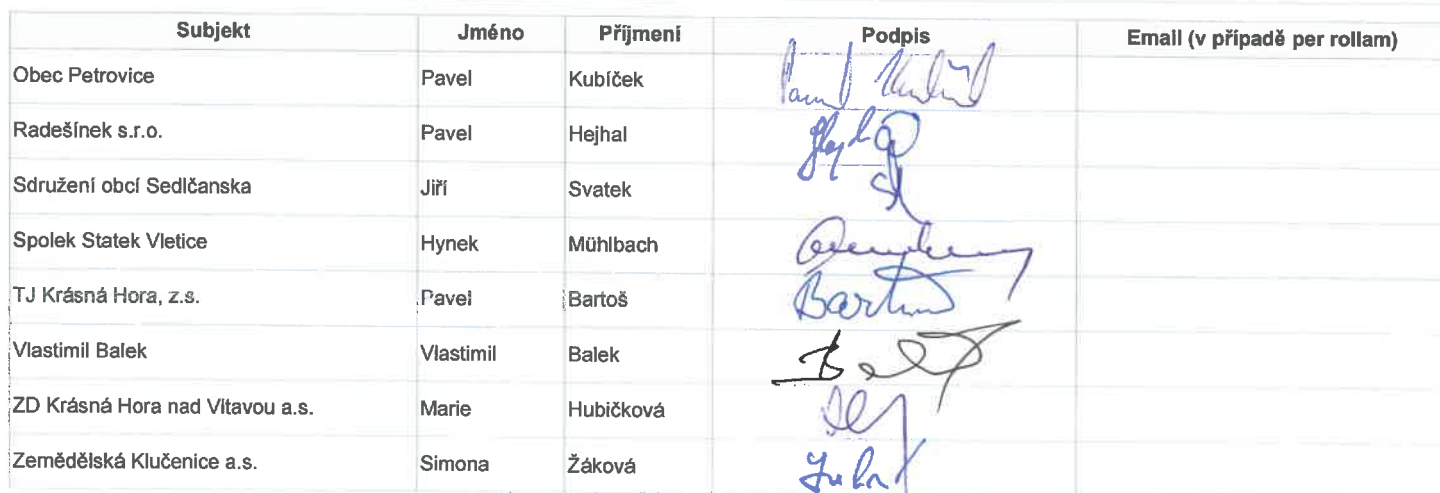 Subjekt Jméno Příjmení Podpis Email (v případě per rollam)
Obec Petrovice Pavel Kubíček
Radešínek s.r.o. Pavel Hejhal
Sdružení obcí Sedlčanska Jiří Svatek
Spolek Statek Vletice Hynek Mühlbach
TJ Krásná Hora, z.s. Pavel Bartoš
Vlastimil Balek Vlastimil Balek
ZD Krásná Hora nad Vltavou a.s. Marie Hubičková
Zemědělská Klučenice a.s. Simona Žáková